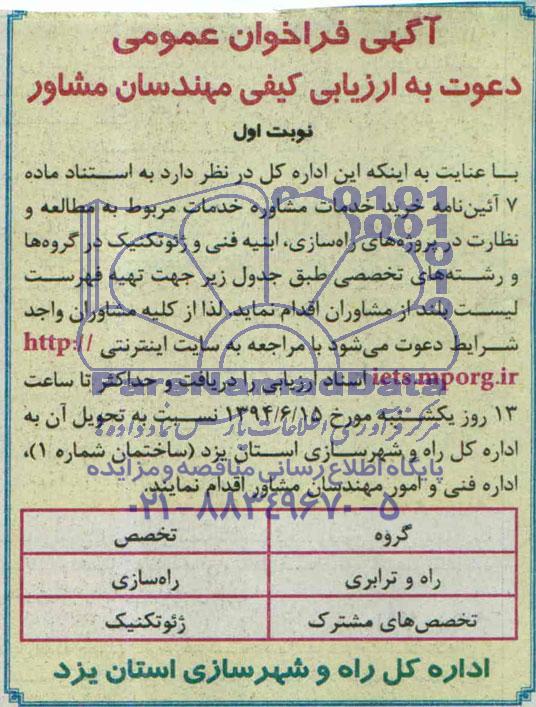 آگهی فراخوان عمومی
دعوت به ارزیابی کیفی مهندسان مشاور
نوبت اول
با عنایت به اینکه این اداره کل در نظر دارد به استناد ماده
۷ آئین‌نامه خرید خدمات مشاوره خدمات مربوط به مطالعه و
نظارت در پروژه‌های راه‌سازی، ابنیه فنی و ژئوتکنیک در گروه‌ها
و رشته‌های تخصصی طبق جدول زیر جهت تهیه فهرست
لیست بلند از مشاوران اقدام نماید. لذا از کلیه مشاوران واجد
شرایط دعوت می‌شود با مراجعه به سایت اینترنتی http://
iets.mporg.ir اسناد ارزیابی را دریافت و حداکثر تا ساعت
۱۳ روز یکشنبه مورخ ۱۳۹۴/۶/۱۵ نسبت به تحویل آن به
اداره کل راه و شهرسازی استان یزد (ساختمان شماره ۱)،
اداره فنی و امور مهندسان مشاور اقدام نمایند.
گروه تخصص
راه و ترابری راه‌سازی
تخصص‌های مشترک ژئوتکنیک
اداره کل راه و شهرسازی استان یزد
ParsNamadData
مرکز آوری اطلاعات پارس نماد داده
پایگاه اطلاع رسانی مناقصه و مزایده
۰۲۱-۸۸۳۴۹۶۷۰-۵